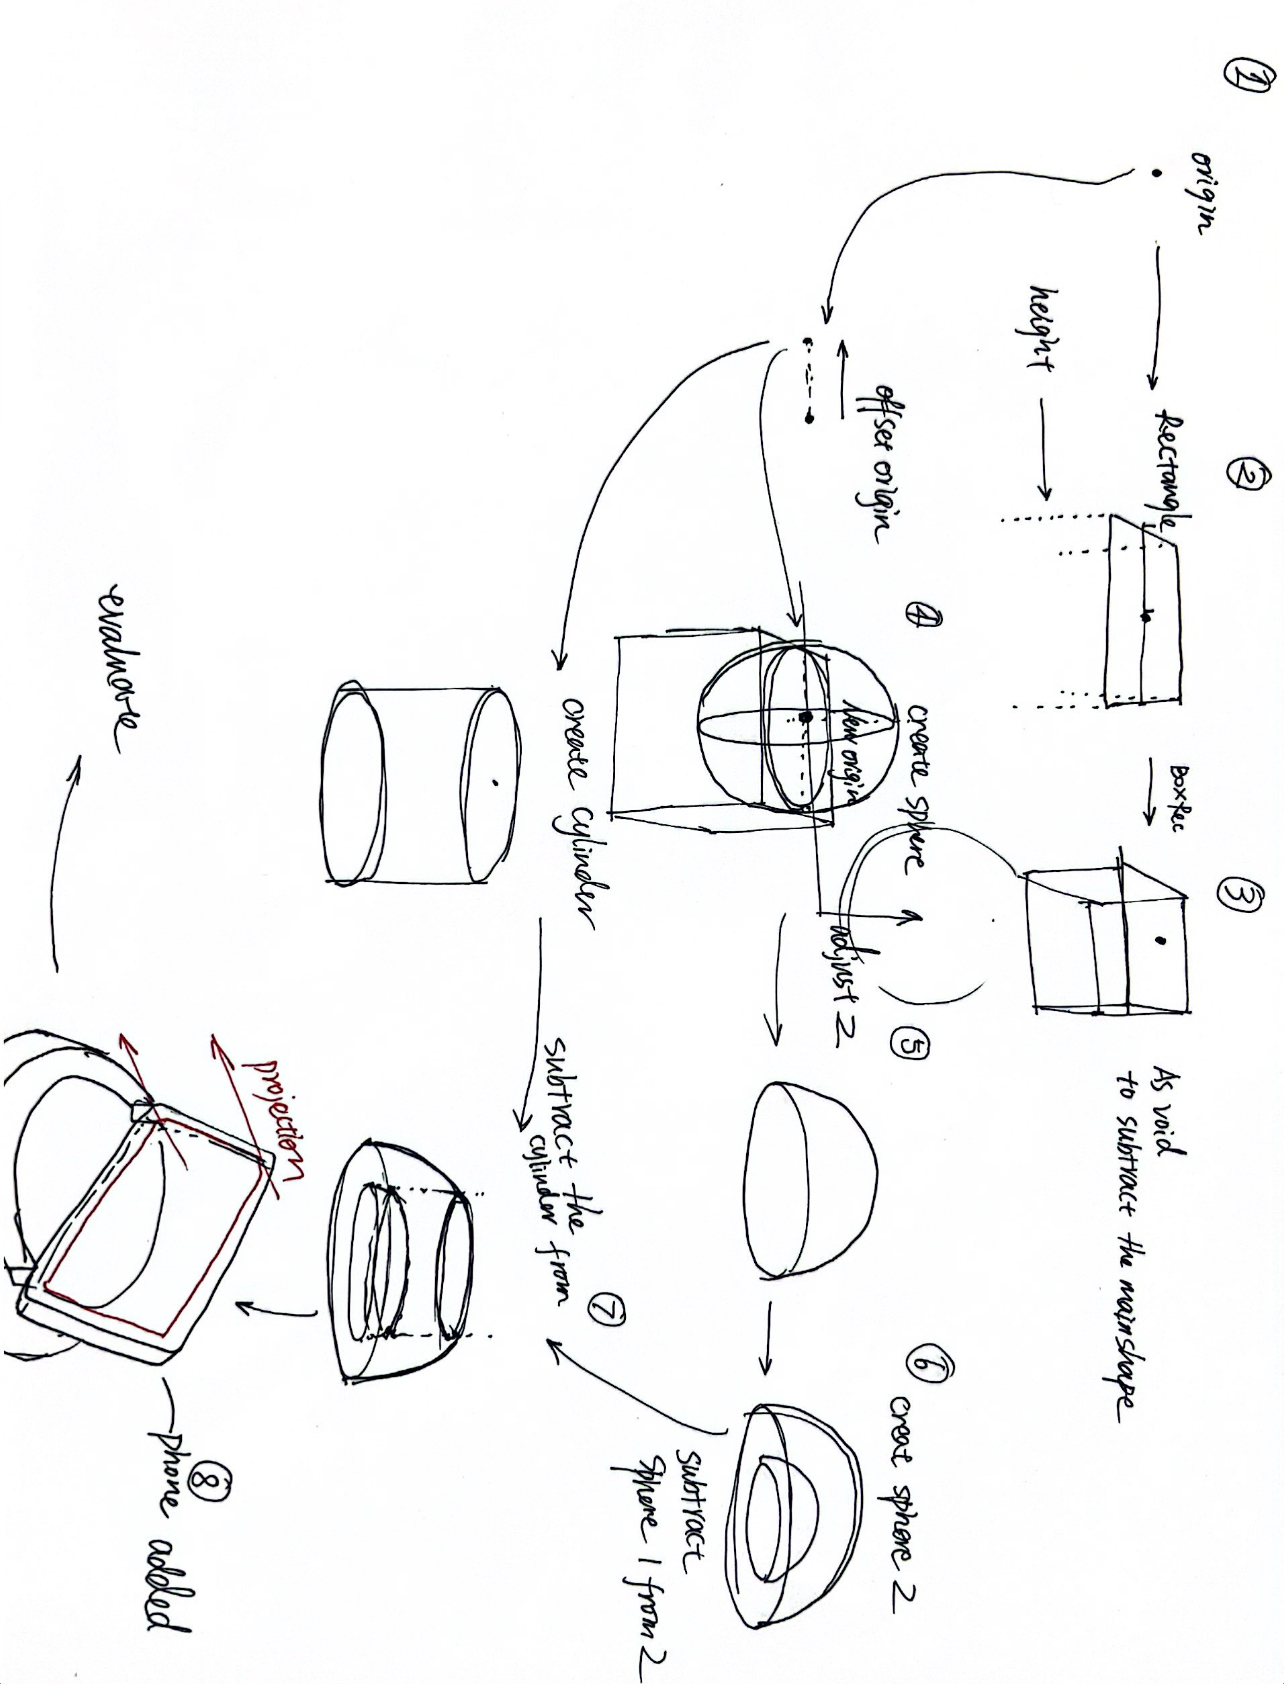 ①
origin
②
Rectangle
height
BoxRec
③
As void
to subtract the mainshape
offset origin
④
create sphere
New origin
adjust Z
⑤
⑥
creat sphere 2
subtract
sphere 1 from 2
create cylinder
⑦
subtract the
cylinder from
projection
⑧
phone added